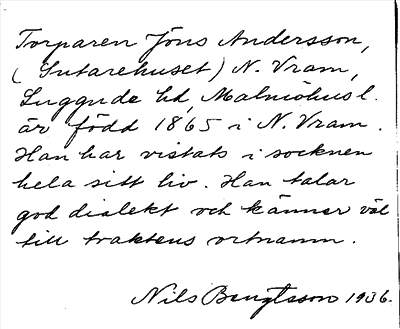 Torparen Jöns Andersson,
(Sutarehuset) N. Vram,
Luggude hd, Malmöhus l.
är född 1865 i N. Vram.
Han har vistats i socknen
hela sitt liv. Han talar
god dialekt och känner väl
till traktens ortnamn.
Nils Bengtsson 1936.